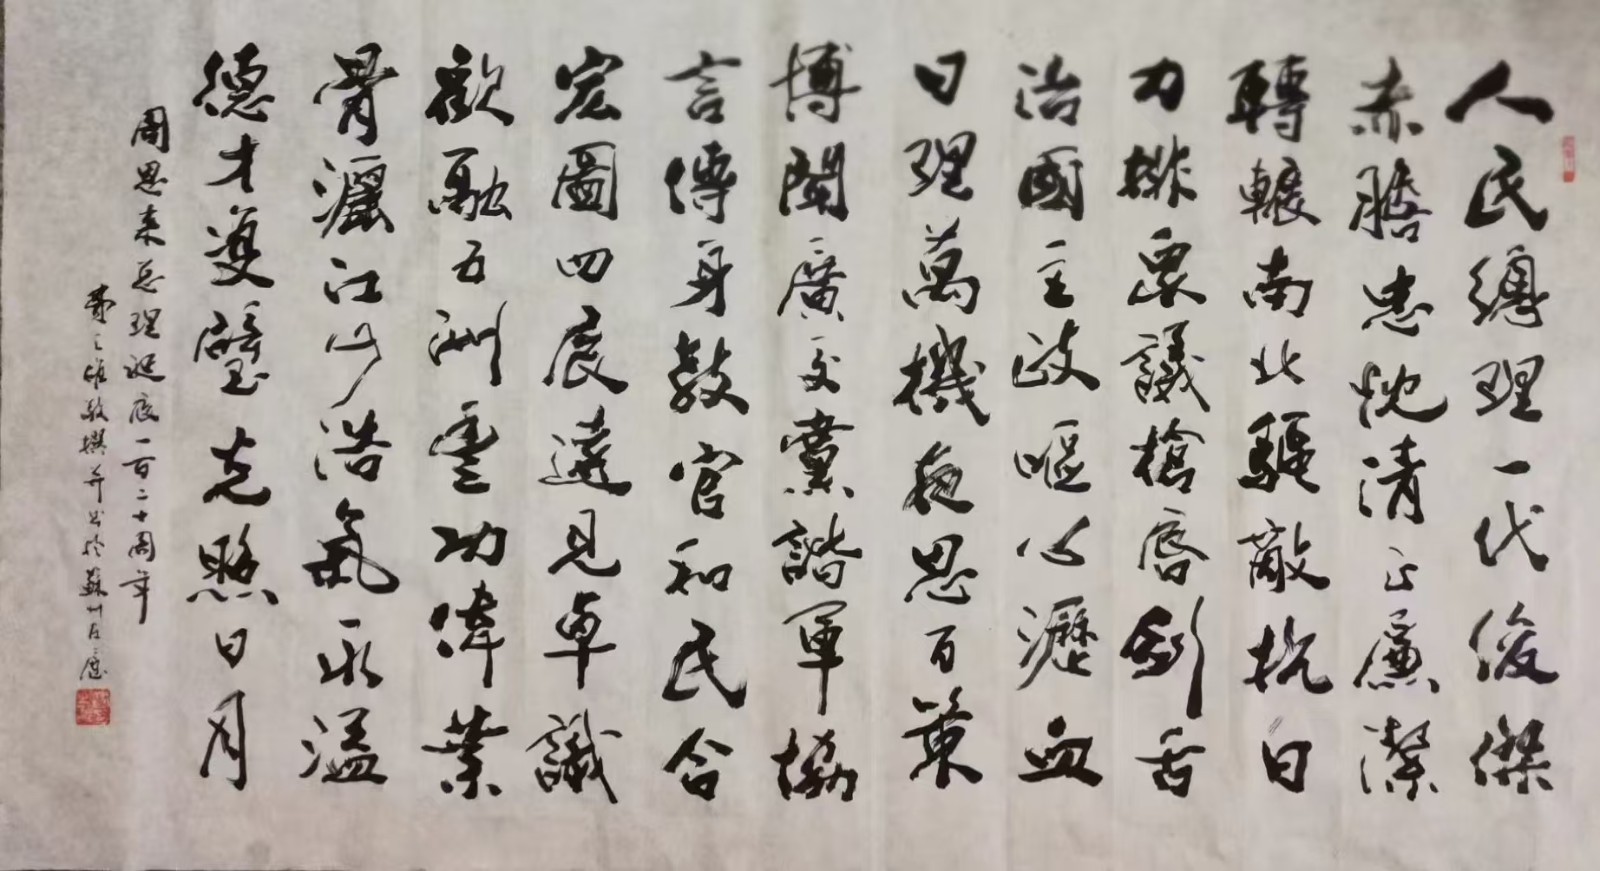 人民總理一代俊傑
赤膽忠忱清正廉潔
轉輾南北驅敵抗日
力排眾議槍唇劍舌
治國主政嘔心瀝血
日理萬機夜思百策
博聞廣交黨諧軍協
言傳身教官和民合
宏圖四展遠見卓識
歡融五洲豐功偉業
骨灑江山浩氣永溢
德才雙璧光照日月
周恩来总理诞辰一百二十周年
敬撰并书於蘇州